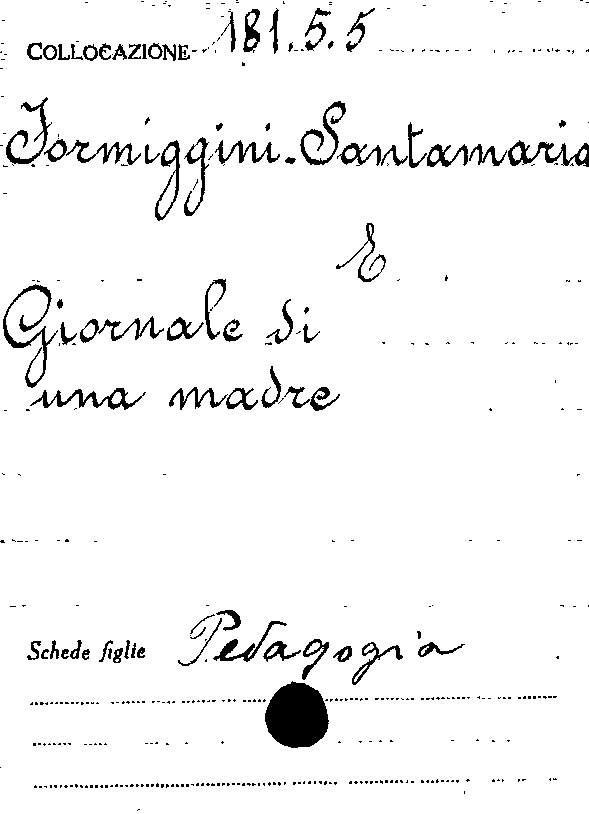 COLLOCAZIONE 181.5.5
Formiggini-Santamaria
E
Giornale di
una madre
Schede figlie Pedagogia